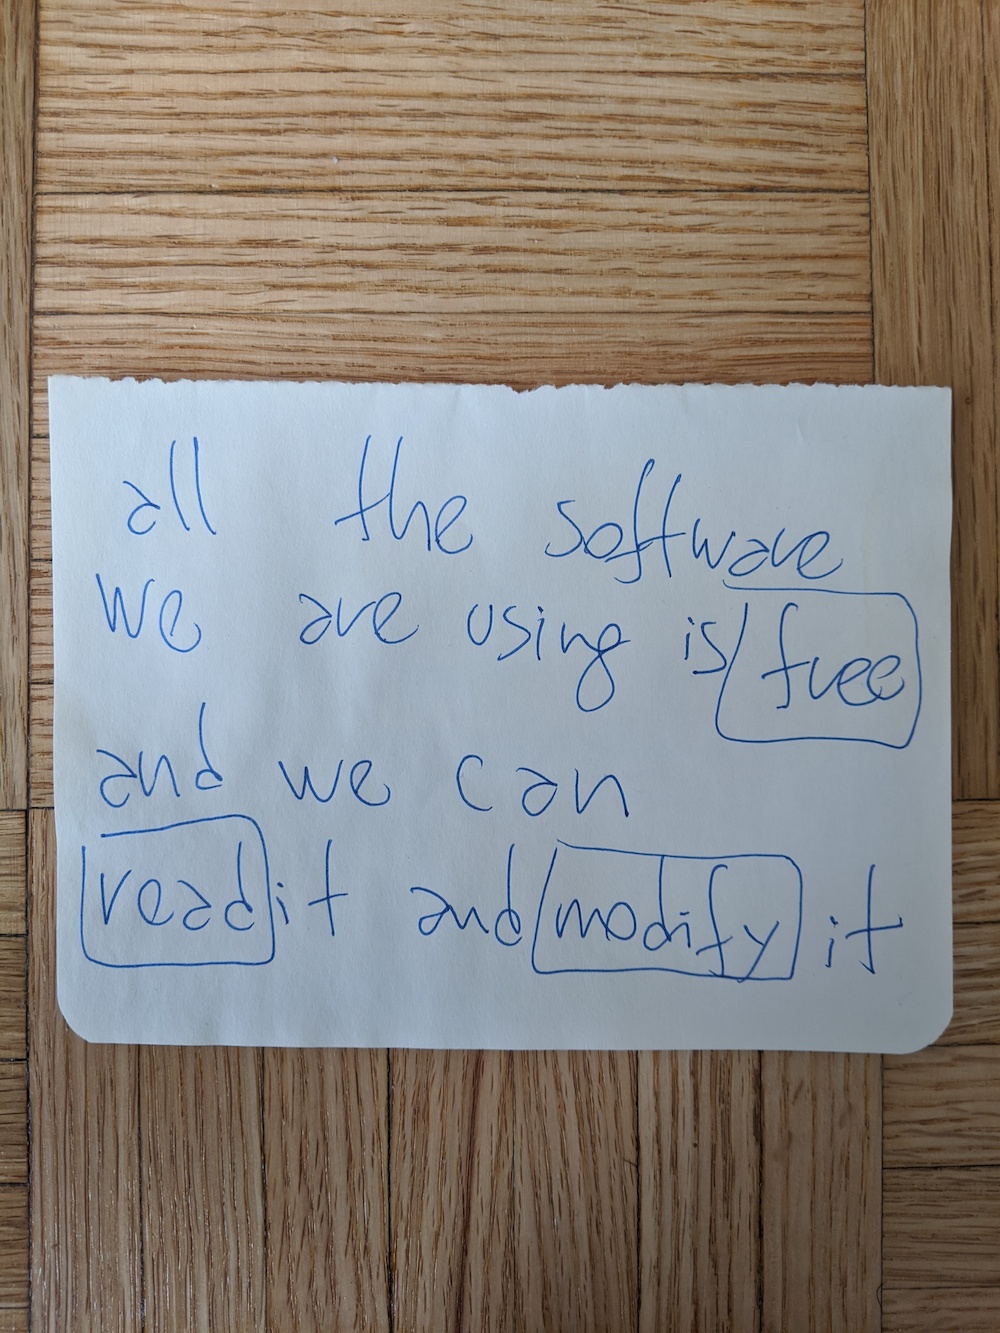 all the software
we are using is free
and we can
read it and modify it